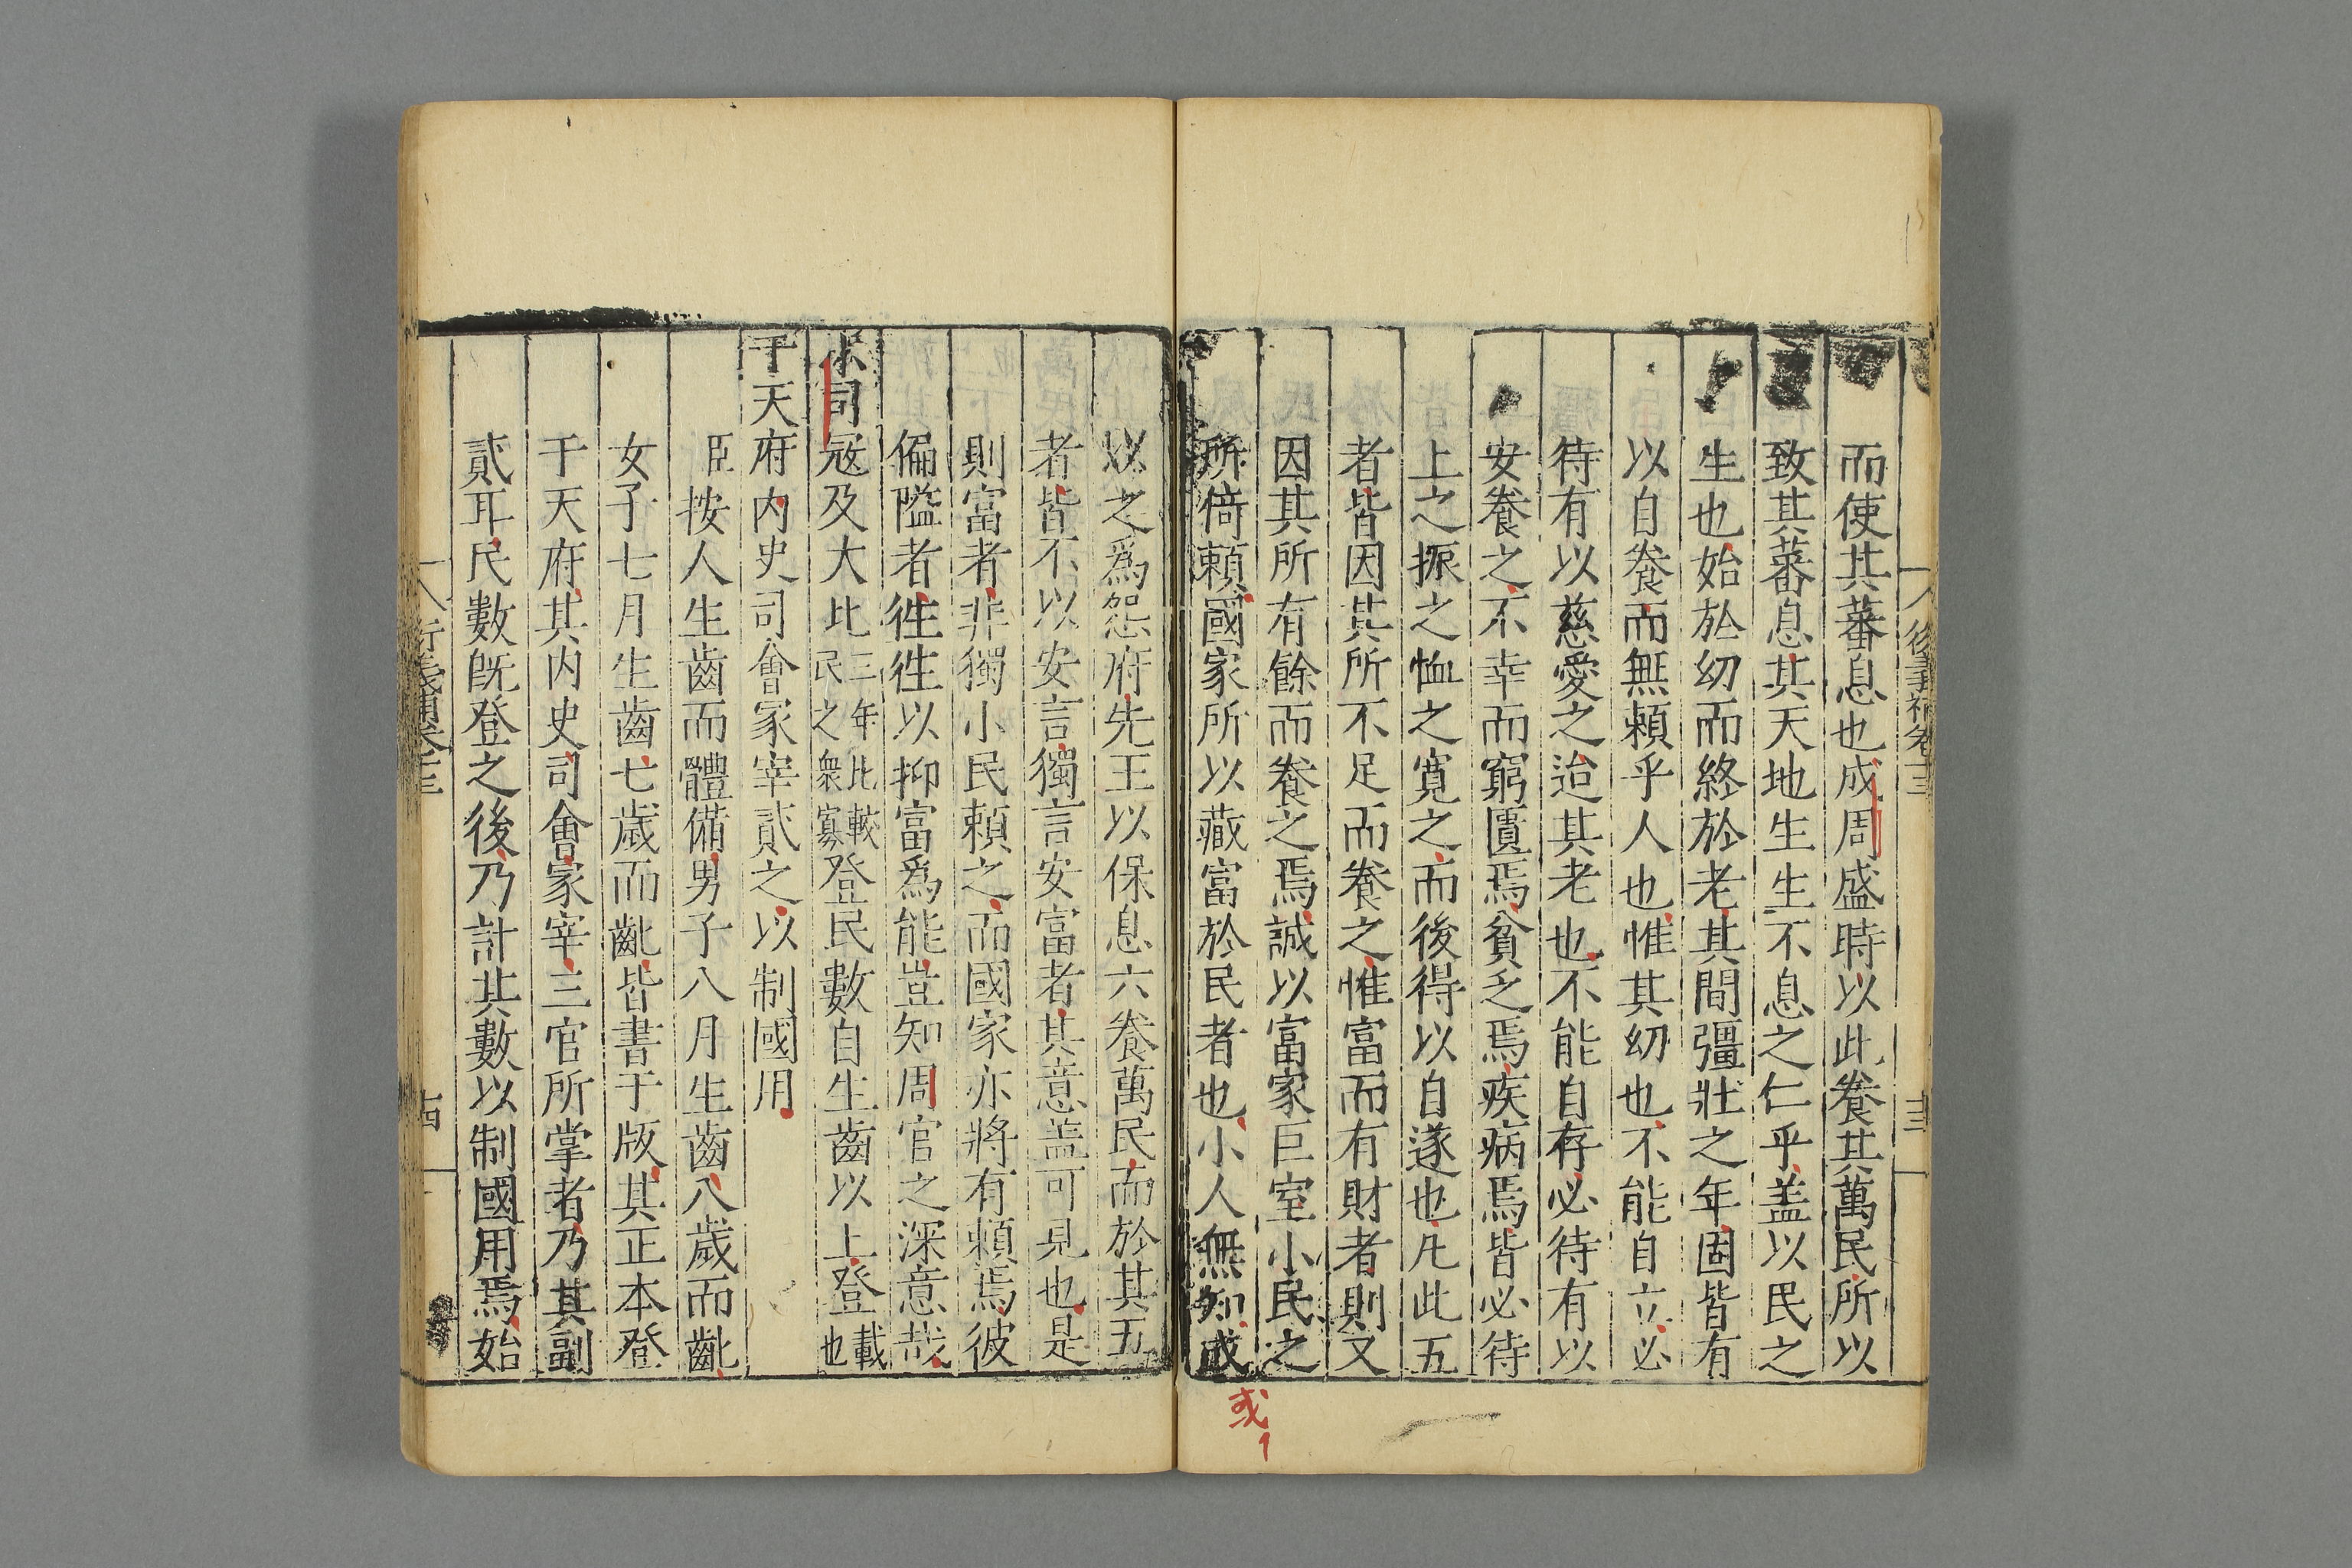 而使其蕃息也成周盛時以此養其萬民所以
致其蕃息其天地生生不息之仁乎盖以民之
生也始於幼而終於老其間彊壯之年固皆有
以自養而無頼乎人也惟其幼也不能自立必
待有以慈愛之迨其老也不能自存必待有以
安養之不幸而窮匱焉貧乏焉疾病焉皆必待
上之振之恤之寬之而後得以自遂也凡此五
者皆因其所不足而養之惟富而有財者則又
因其所有餘而養之焉誠以富家巨室小民之
所倚頼國家所以藏富於民者也小人無知或
或
以之爲怨府先王以保息六養萬民而於其五
者皆不以安言獨言安富者其意盖可見也是
則富者非獨小民頼之而國家亦將有頼焉彼
偏隘者徃徃以抑富爲能豈知周官之深意哉
司寇及大比三年比較民之衆寡登民數自生齒以上登載也
于天府内史司會冢宰貳之以制國用
臣按人生齒而體備男子八月生齒八歲而齔
女子七月生齒七歲而齔皆書于版其正本登
于天府其内史司會冢宰三官所掌者乃其副
貳耳民數旣登之後乃計其數以制國用焉始